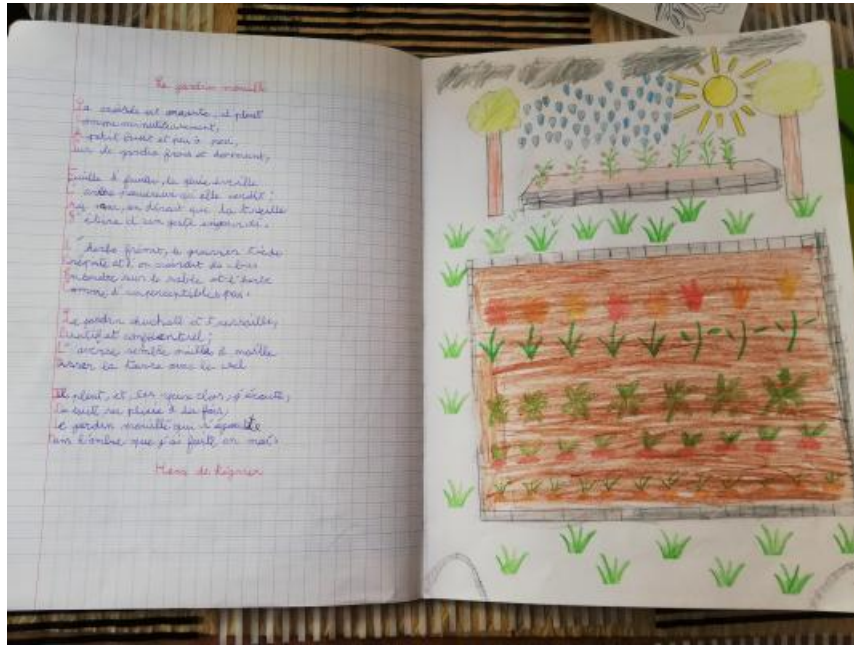 Le jardin mouillé
La croisée est ouverte, il pleut
Comme minutieusement,
A petit bruit et peu à peu,
Sur le jardin frais et dormant,
Feuille à feuille, la pluie éveille
L'arbre poudreux qu'elle verdit ;
Au mur, on dirait que la treille
S'étire d'un geste engourdi.
L'herbe frémit, le gravier tiède
Crépite et l'on croirait là-bas
Entendre sur le sable et l'herbe
Comme d'imperceptibles pas.
Le jardin chuchote et tressaille,
Furtif et confidentiel ;
L'averse semble maille à maille
Tisser la terre avec le ciel
Il pleut, et, les yeux clos, j'écoute,
De toute sa pluie à la fois,
Le jardin mouillé qui s'égoutte
Dans l'ombre que j'ai faite en moi.
de Régnier